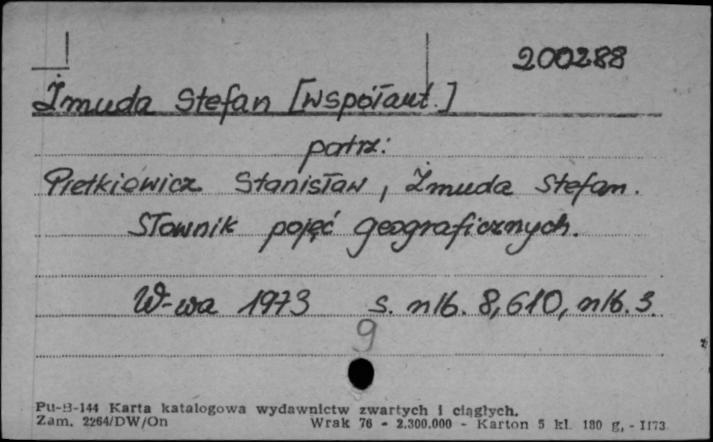 200288
Żmuda Stefan [współaut.]
patrz:
Pietkiewicz Stanisław, Żmuda Stefan.
Słownik pojęć geograficznych.
W-wa 1973 s. nlb. 8, 610, nlb. 3.
9
Pu-B-144 Karta katalogowa wydawnictw zwartych i ciągłych.
Zam. 2264/DW/On Wrak 76 - 2.300.000 - Karton 5 kl. 180 g, - 1173